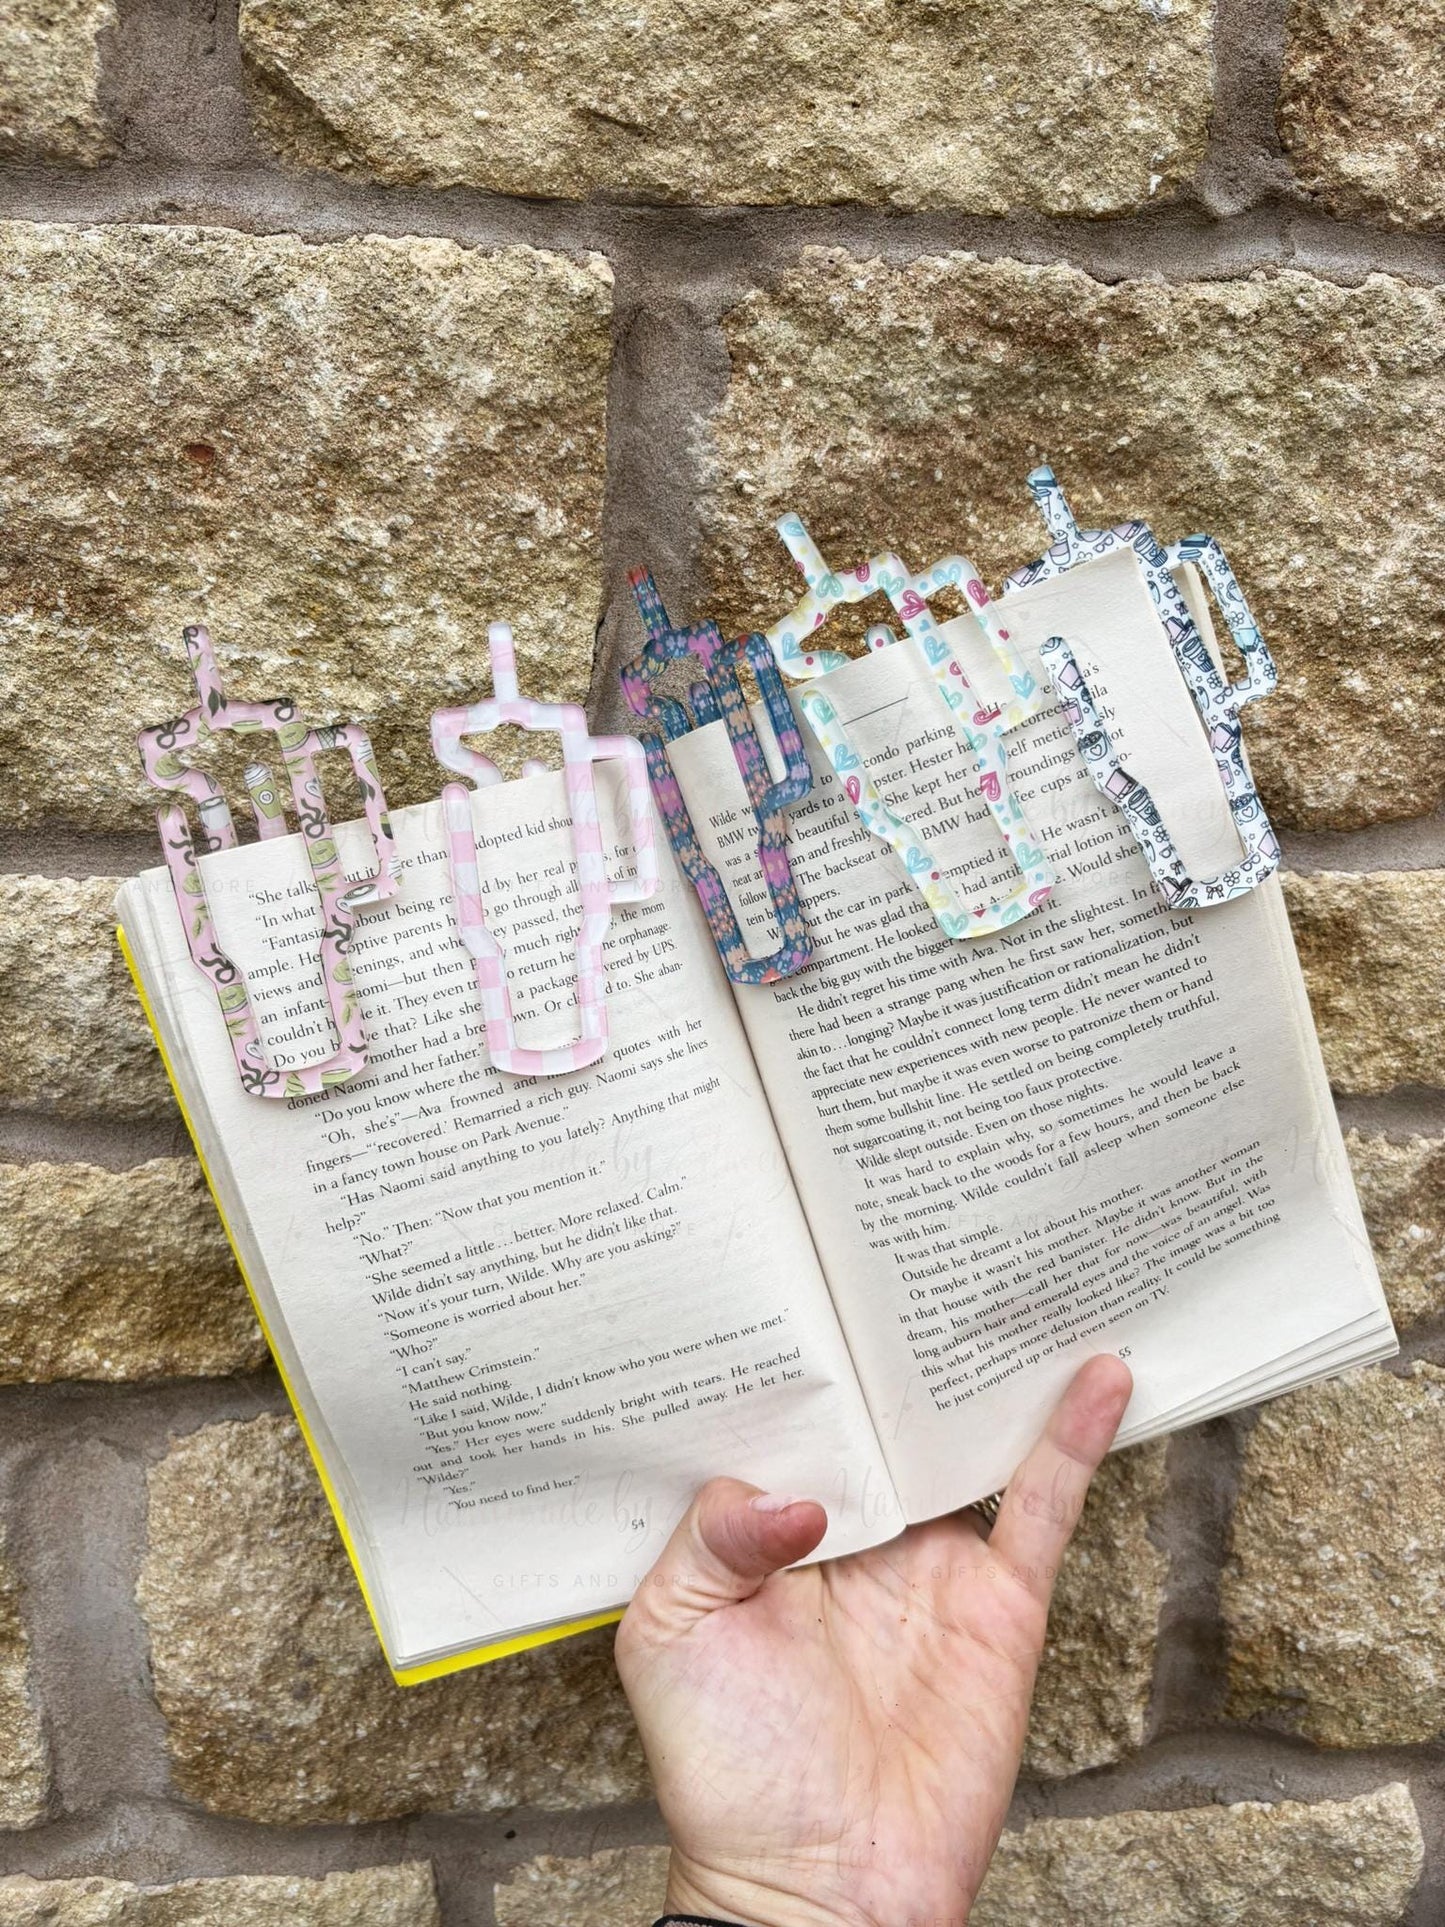 adopted kid shou
"She talks it re than
d by her real p s, for
"In what about being re o go through all s of in
"Fantasiz optive parents h passed, they , the mom
ample. He eenings, and whe much righ ne orphanage.
views and aomi—but then o return he vered by UPS.
an infant— e it. They even tr a package d to. She aban-
couldn't h e that? Like she own. Or cl
Do you b mother had a bre
doned Naomi and her father." quotes with her
"Do you know where the m
"Oh, she's"—Ava frowned and guy. Naomi says she lives
fingers—"'recovered.' Remarried a rich
in a fancy town house on Park Avenue."
"Has Naomi said anything to you lately? Anything that might
help?"
"No." Then: "Now that you mention it."
"What?"
"She seemed a little . . . better. More relaxed. Calm."
Wilde didn't say anything, but he didn't like that.
"Now it's your turn, Wilde. Why are you asking?"
"Someone is worried about her."
"Who?"
"I can't say."
"Matthew Crimstein."
He said nothing.
"Like I said, Wilde, I didn't know who you were when we met."
"But you know now."
"Yes." Her eyes were suddenly bright with tears. He reached
out and took her hands in his. She pulled away. He let her.
"Wilde?"
"Yes."
"You need to find her."
54
Wilde wa
BMW tw yards to a condo parking
was a s A beautiful s pster. Hester ha self metic
neat an ean and freshly She kept her o roundings
follow The backseat of ered. But he fee cups a
tein b appers. BMW had He wasn't a
W but the car in park emptied it rial lotion in
compartment. He looked had antib e. Would she
but he was glad tha it.
back the big guy with the bigger Ava. Not in the slightest. In f
He didn't regret his time with Ava. when he first saw her, something
there had been a strange pang when he first saw her, someth
akin to . . . longing? Maybe it was justification or rationalization, but
the fact that he couldn't connect long term didn't mean he didn't
appreciate new experiences with new people. He never wanted to
hurt them, but maybe it was even worse to patronize them or hand
them some bullshit line. He settled on being completely truthful,
not sugarcoating it, not being too faux protective.
Wilde slept outside. Even on those nights.
It was hard to explain why, so sometimes he would leave a
note, sneak back to the woods for a few hours, and then be back
by the morning. Wilde couldn't fall asleep when someone else
was with him.
It was that simple.
Outside he dreamt a lot about his mother.
Or maybe it wasn't his mother. Maybe it was another woman
in that house with the red banister. He didn't know. But in the
dream, his mother—call her that for now—was beautiful, with
long auburn hair and emerald eyes and the voice of an angel. Was
this what his mother really looked like? The image was a bit too
perfect, perhaps more delusion than reality. It could be something
he just conjured up or had even seen on TV.
55
Handmade by
GIFTS AND MORE